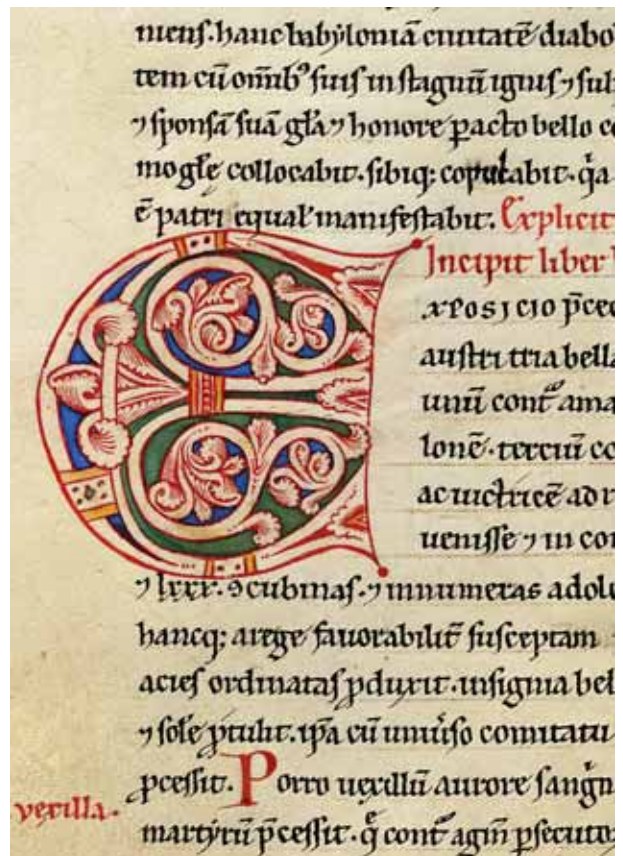 mens. hanc babẏloniā ciuitatē diabo
tem cū om̄ibꝰ suis in stagnū ignis ⁊ sul
⁊ sponsā suā gl̄a ⁊ honore ꝑacto bello c
mogl̄e collocabit. sibiqꝫ copulabit. q̄a
ē patri equal̄ manifestabit. Explicit
Incipit liber
Exposicio p̄ce
austri tria bella
unū cont̄ ama
lonē. terciū co
ac uictricē ad r
uenisse ⁊ in co
⁊ lxxx. ꝯcubinas. ⁊ innumeras adolu
hancqꝫ a rege fauorabilit̄ susceptam
acies ordinatas ꝓduxit. insignia bel
⁊ sole p̄tulit. ip̄a cū uniůso comitatu
ꝓcessit. Porro uexillū aurore sangn
uexilla.
martẏrū p̄cessit. q̄ cont̄ agm̄ ꝑsecuto